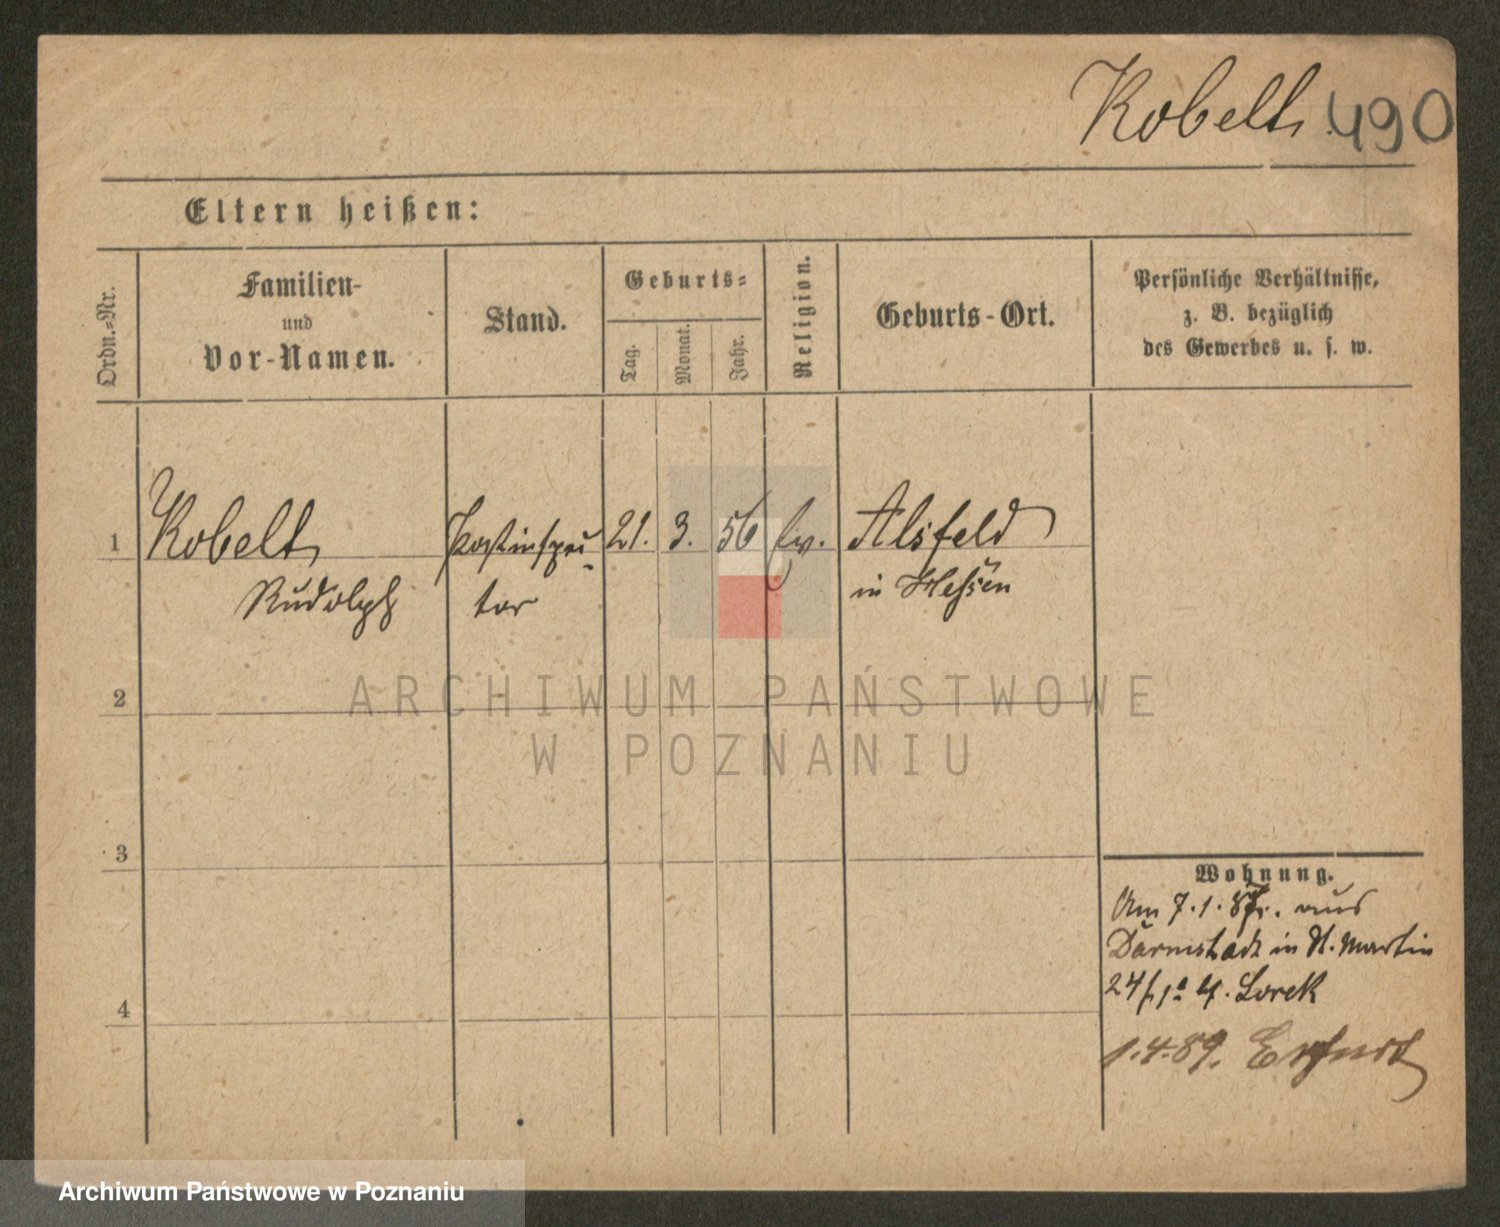 Kobelt. 490
Eltern heißen:
Ordn.-Nr.
Familien-
und
Vor-Namen.
Stand.
Geburts-
Tag.
Monat.
Jahr.
Religion.
Geburts-Ort.
Persönliche Verhältnisse,
z. B. bezüglich
des Gewerbes u. s. w.
1 Kobelt Postinspec- 21. 3. 56 ev. Alsfeld
Rudolph tor in Hessen
2
ARCHIWUM PAŃSTWOWE
W POZNANIU
3
Wohnung.
Am 7.1.87. aus
Darmstadt in St. Martin
24/ Lorek
4
1.4.89. Erfurt
Archiwum Państwowe w Poznaniu